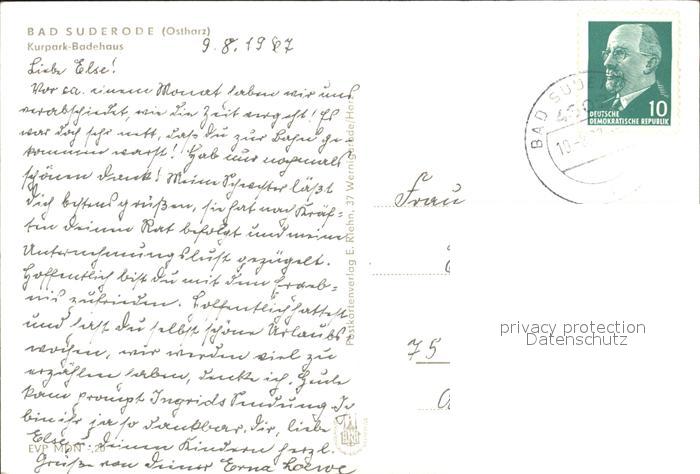 BAD SUDERODE (Ostharz)
Kurpark-Badehaus
9.8.1967
Liebe Else!
Vor ca. einem Monat haben wir uns
verabschiedet, wie die Zeit vergeht! Es
war doch sehr nett, daß du zur Bahn ge-
kommen warst! Hab nur nochmals
schönen Dank! Meine Schwester läßt
Dich bestens grüßen, sie hat nach Kräf-
ten deinen Rat befolgt und meine
Unternehmungslust gezügelt.
Hoffentlich bist du mit dem Ergeb-
nis zufrieden. Hoffentlich hattest
und hast du selbst schöne Urlaubs
wochen, wir werden viel zu
erzählen haben, denke ich. Heute
kam prompt Ingrids Sendung. Ich
bin ihr ja so dankbar, dir, liebe
Else u. deinen Kindern herzl.
Grüße von deiner Erna Loewe
EVP MDN -,20
Postkartenverlag E. Riehn, 37 Wernigerode/Harz
DEUTSCHE
DEMOKRATISCHE REPUBLIK
10
BAD SUDE
Frau
75
privacy protection
Datenschutz